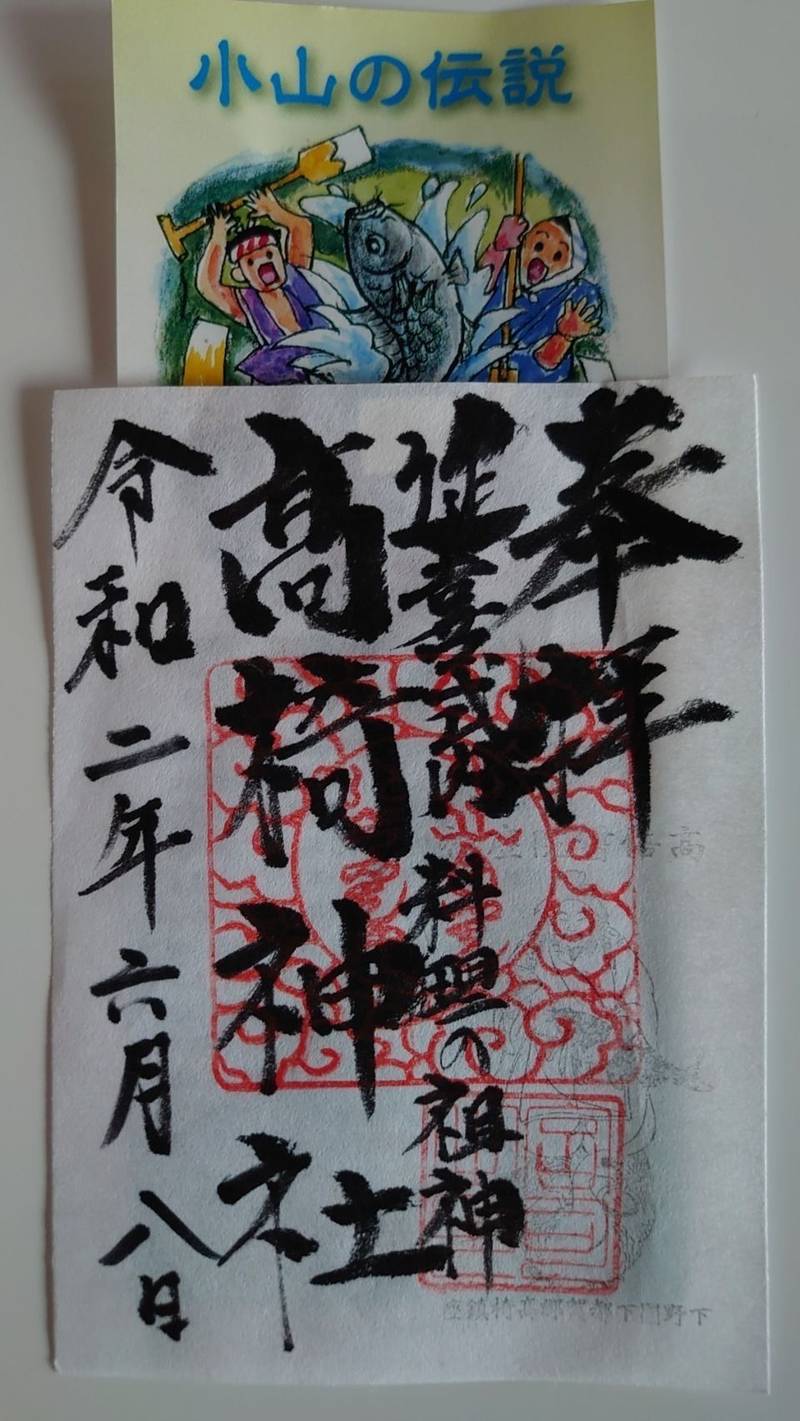 小山の伝説
奉拝
延喜式内 料理の祖神
高椅神社
令和二年六月八日
下野国下都賀郷高椅鎮座